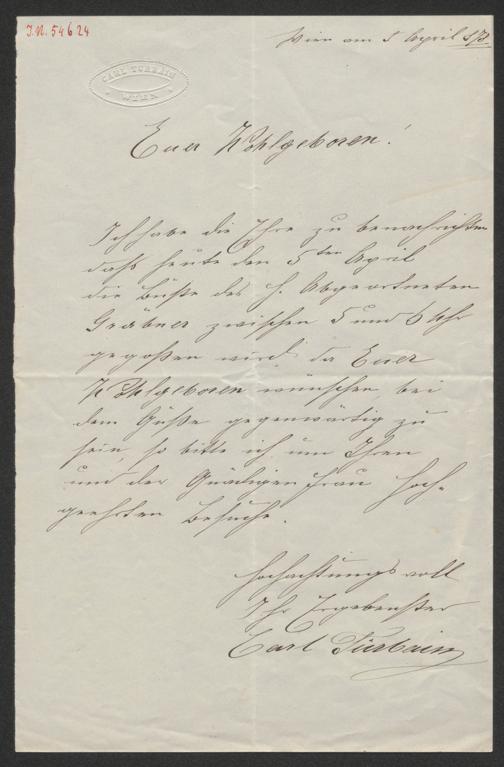 J.N. 54624
Wien am 5 April
CARL TURBAIN
WIEN
Euer Wohlgeboren!
Ich habe die Ehre zu benachrichten
daß heute den 5ten April
die Büste des H. Abgeordneten
Grabner zwischen 5 und 6 Uhr
gegoßen wird da Euer
Wohlgeboren wünschen bei
dem Guße gegenwärtig zu
sein, so bitte ich um Ihren
und der Gnädigen Frau hoch-
geehrten Besuche.
Hochachtungsvoll
Ihr Ergebenster
Carl Turbain